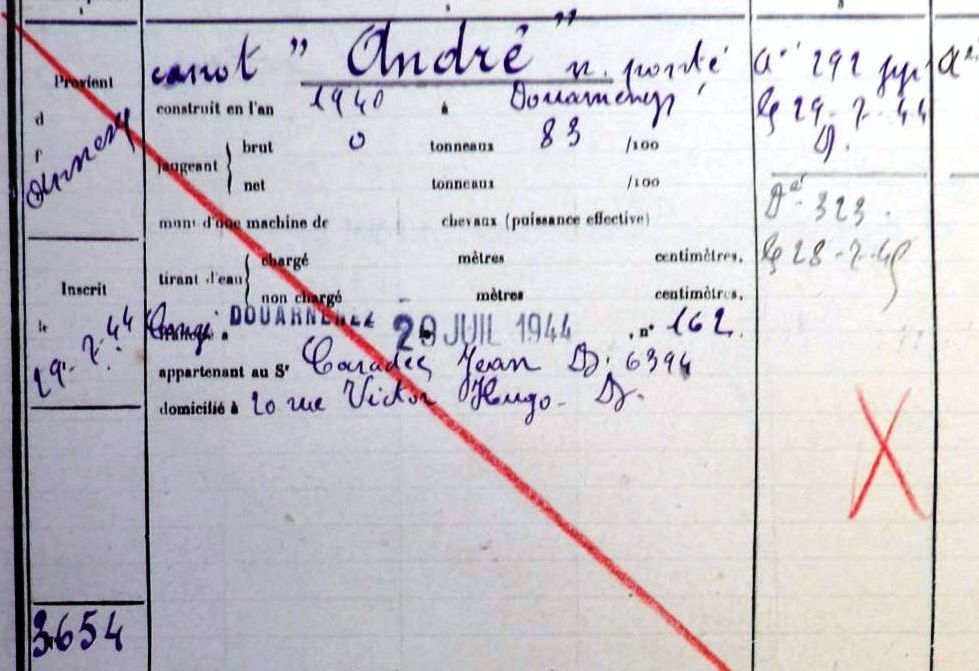 Provient
d
r
Inscrit
le
29.7.44
3654
canot " André " n. ponté
construit en l'an 1940 à Douarnenez
jaugeant
brut 0 tonneaux 83 /100
net tonneaux /100
muni d'une machine de chevaux (puissance effective)
tirant d'eau
chargé mètres centimètres,
non chargé mètres centimètres,
à DOUARNENEZ 29 JUIL 1944, n° 162.
appartenant au Sr Caradec Jean Dz. 6394
domicilié à 20 rue Victor Hugo - Dz.
292
29-7-44
323.
28-7-45